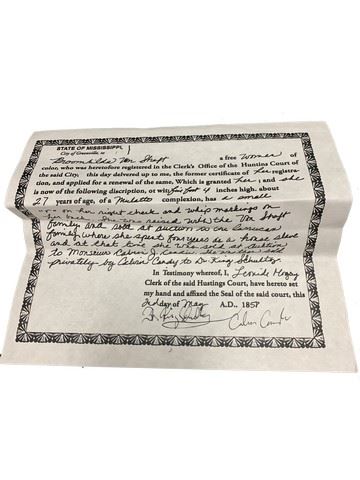 STATE OF MISSISSIPPI,
City of Greenville, ss
Broomhilda Von Shaft a free Women of
color, who was heretofore registered in the Clerk's Office of the Hustins Court of
the said City, this day delivered up to me, the former certificate of her registra-
tion, and applied for a renewal of the same, Which is granted her; and she
is now of the following discription, ot wit, five feet 4 inches high, about
27 years of age, of a Mulatto complexion, has a small
on her right cheek and whip markings on
her back. She was raised with the Von Shaft
family and sold at auction to the Carrucan
family where she spent four years as a house slave
and at that time she was sold at auction
to Monsieur Calvin J. Candie. She was then sold
privately by Calvin Candy to Dr. King Schultz.
In Testimony whereof, I, Leonide Moguy
Clerk of the said Hustings Court, have hereto set
my hand and affixed the Seal of the said court, this
3rd day of May A.D., 185P